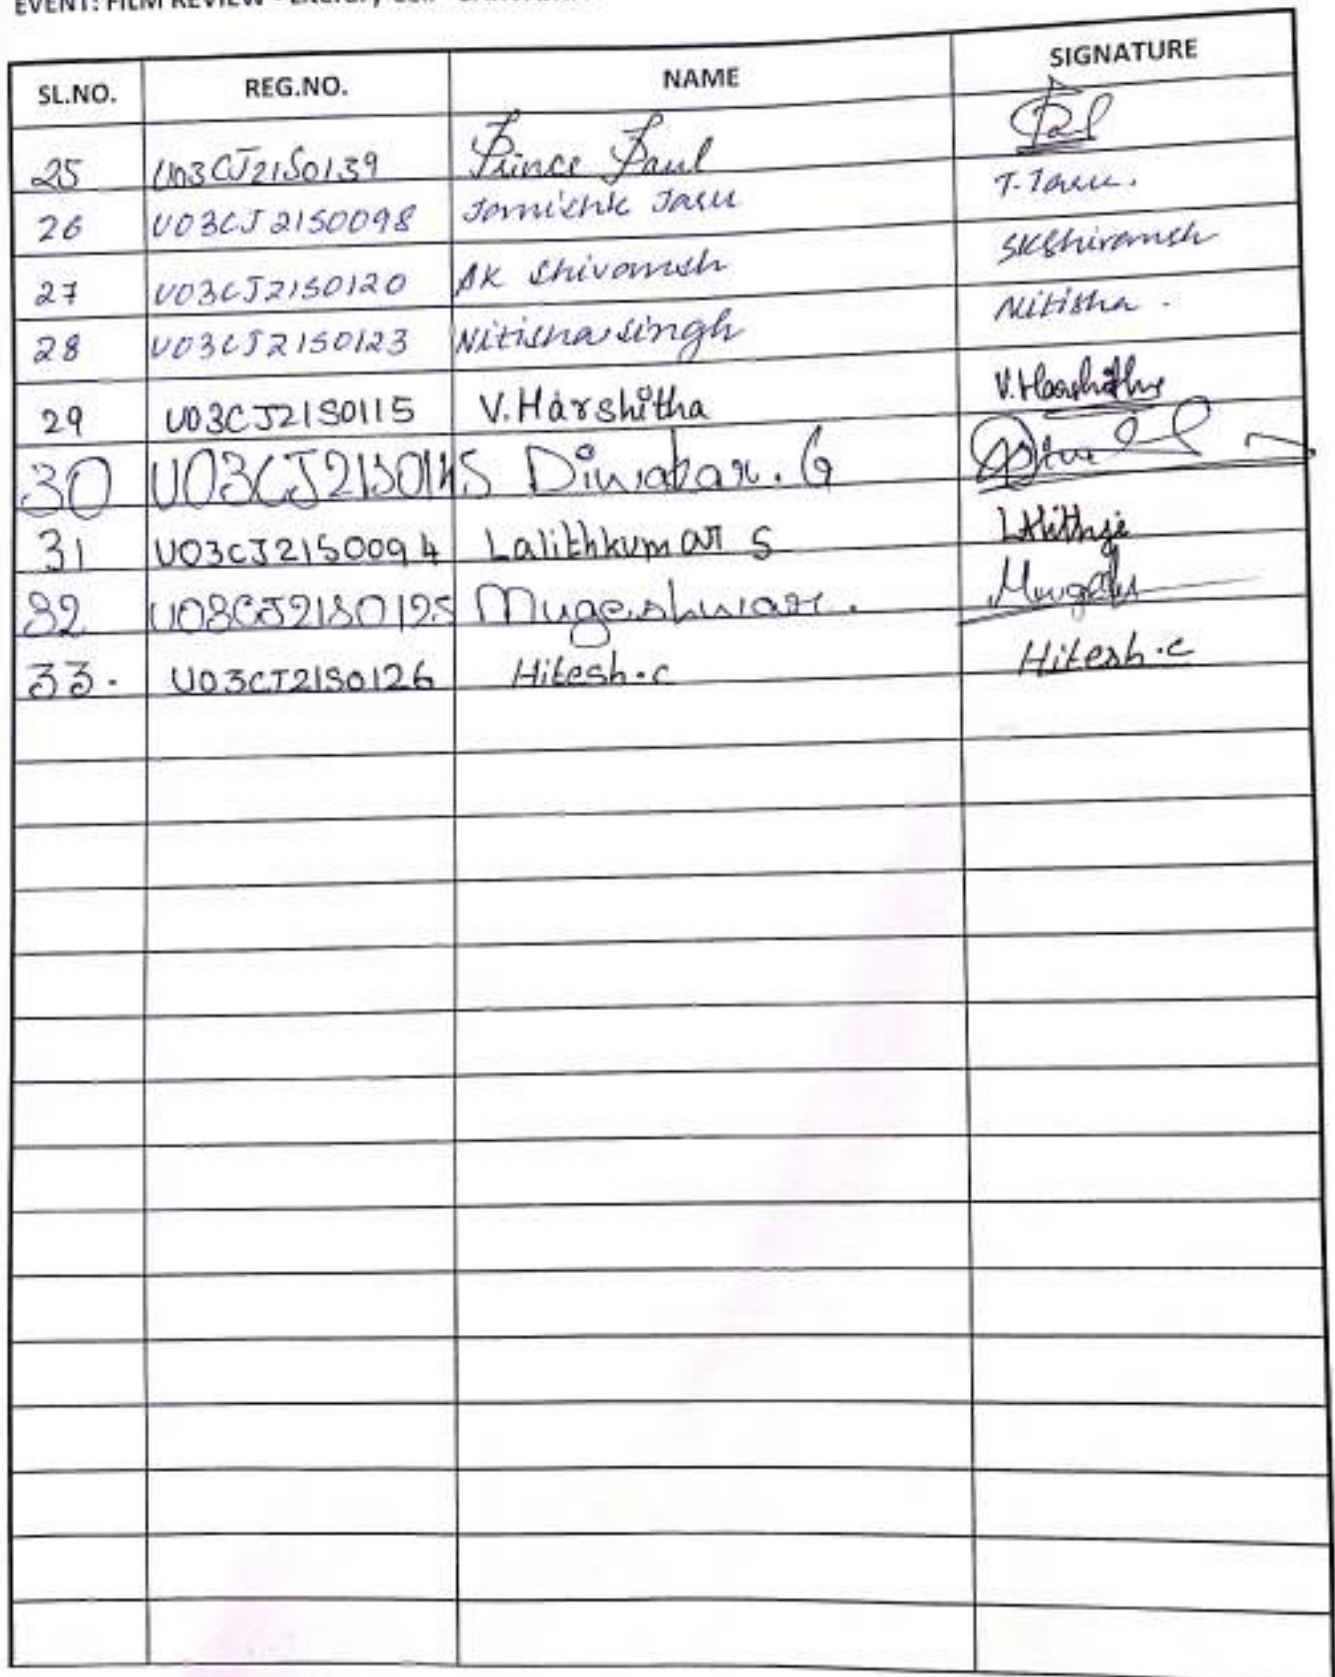 EVENT: FILM REVIEW - Literary Cell -
SL.NO. REG.NO. NAME SIGNATURE
25 U03CJ21S0139 Prince Paul
26 U03CJ21S0098 T.
27 U03CJ21S0120 SK Shivamsh SKShivamsh
28 U03CJ21S0123 Nitisha singh Nitisha .
29 U03CJ21S0115 V.Harshitha V.Harshitha
30 U03CJ21S0145 Diwakar. G
31 U03CJ21S0094 Lalithkumar S
32 U03CJ21S0125 Mugeshwar.
33. U03CJ21S0126 Hitesh.c Hitesh.c